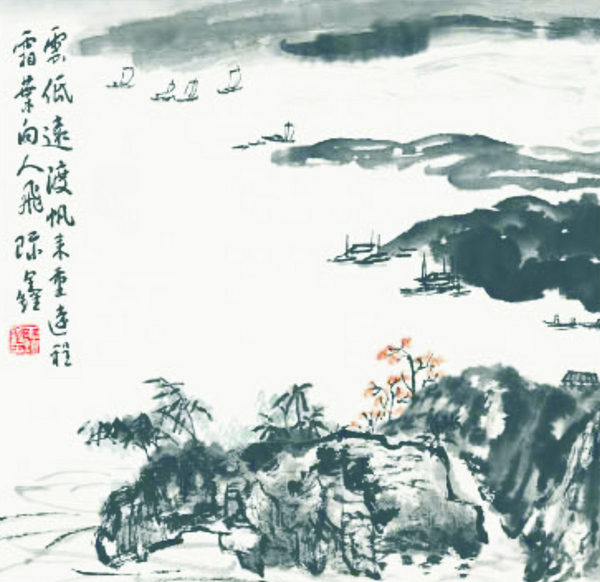 雲低遠渡帆来重遠程
霜葉向人飛 鑫